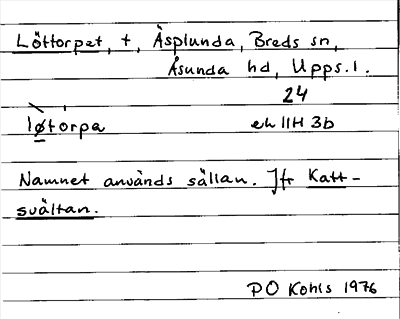 Löttorpet, t, Äsplunda, Breds sn,
Åsunda hd, Upps. l.
24
løtorpa ek 11H 3b
Namnet används sällan. Jfr Katt-
svältan.
PO Kohls 1976